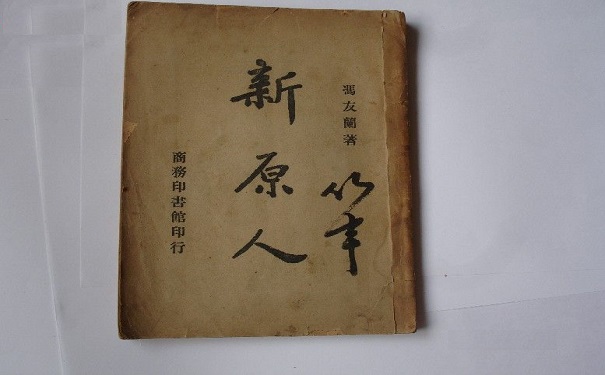 馮友蘭著
新原人
商務印書館印行